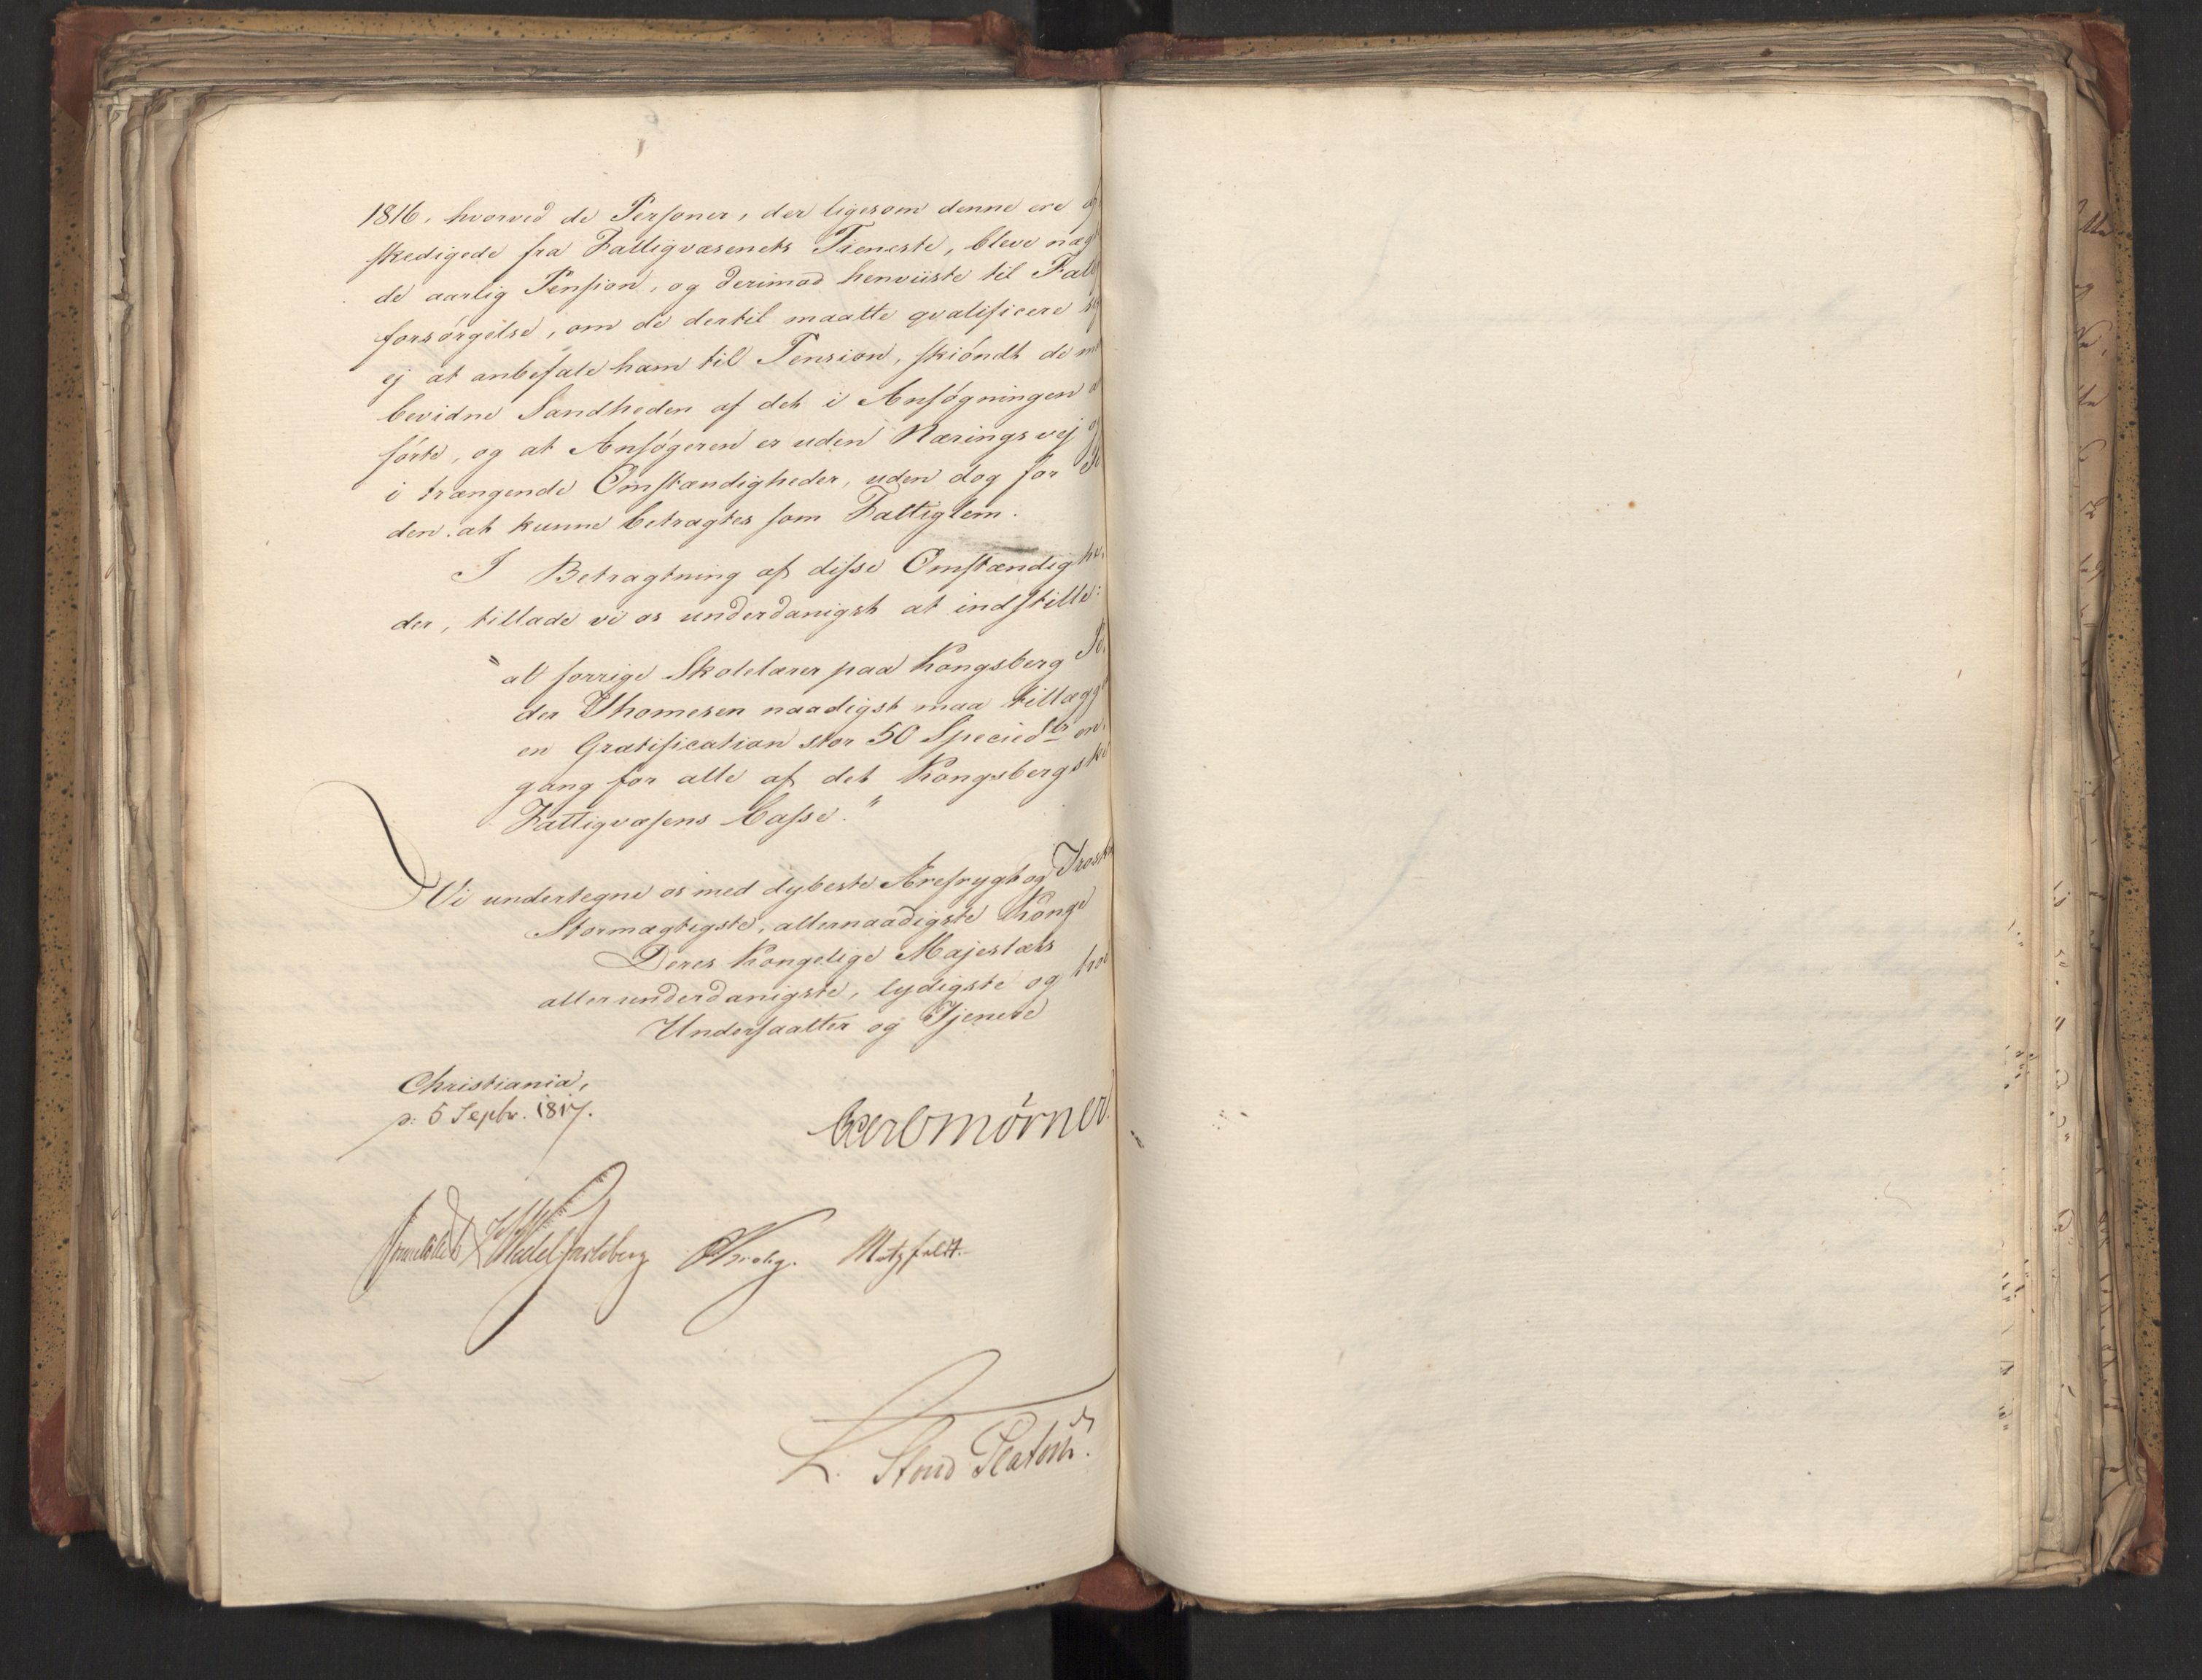 1816, hvorved de Personer, der ligesom denne ere
skedigede fra Fattigvæsenets Tieneste, bleve næg
de aarlig Pension, og derimod henviiste til Fat
forsørgelse, om de dertil maatte qvalificere
ej at anbefale ham til Pension, skiøndt de
bevidne Sandheden af det i Ansøgningen
førte, og at Ansøgeren er uden Næringsvej
i trængende Omstændigheder, uden dog for
den at kunne betragtes som Fattiglem.
I Betragtning af disse Omstændighe
der, tillade vi os underdanigst at indstille:
"at forrige Skolelærer paa Kongsberg Pe
der Thomesen naadigst maa tillægge
en Gratification stor 50 Speciedlr en
gang for alle af det Kongsbergske
Fattigvæsens Casse."
Vi undertegne os med dybeste Ærefrygt og Trosk
Stormægtigste, allernaadigste Konge
Deres Kongelige Majestæts
allerunderdanigste, lydigste og troe
Undersaatter og Tjenere
Christiania,
d: 5 Septbr. 1817.
Carl Mörner
Sommerhielm Wedel Jarlsberg Krohg. Motzfeldt.
L. Stoud Platou